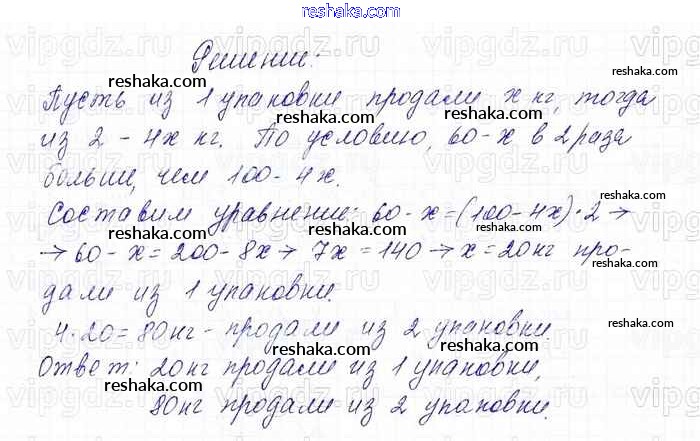 reshaka.com
Решение:
Пусть из 1 упаковки продали x кг, тогда
из 2 - 4x кг. По условию, 60-x в 2 раза
больше, чем 100-4x.
Составим уравнение: 60-x=(100-4x)·2 →
→ 60-x=200-8x → 7x=140 → x=20кг про-
дали из 1 упаковки.
4·20=80кг - продали из 2 упаковки.
Ответ: 20кг продали из 1 упаковки,
80кг продали из 2 упаковки.